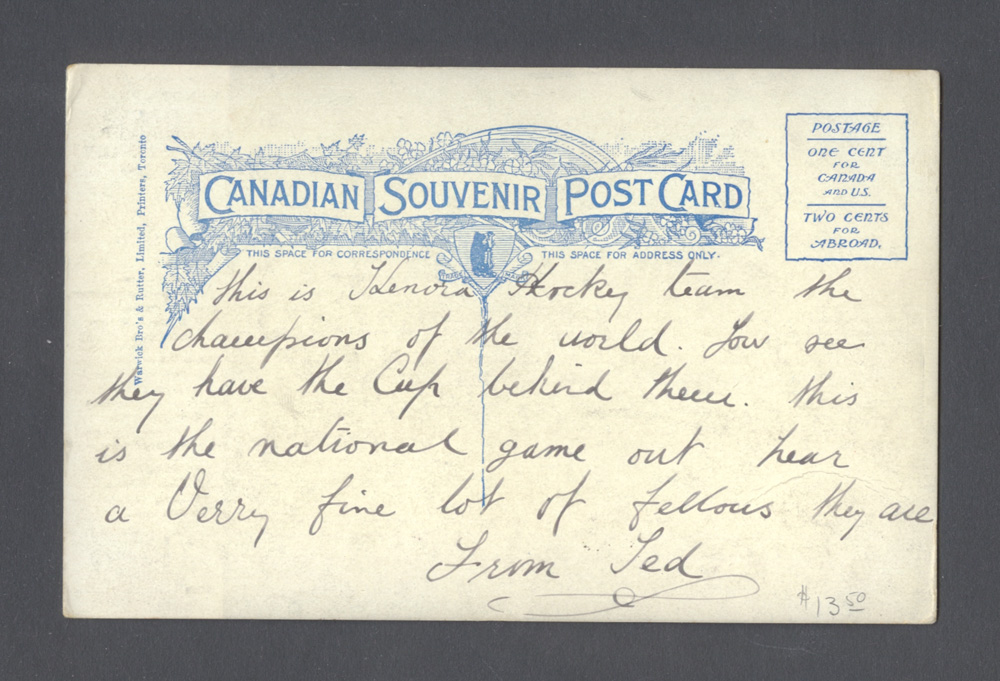 CANADIAN SOUVENIR POST CARD
THIS SPACE FOR CORRESPONDENCE
THIS SPACE FOR ADDRESS ONLY.
POSTAGE
ONE CENT
FOR
CANADA
AND U.S.
TWO CENTS
FOR
ABROAD.
Warwick Bro's & Rutter, Limited, Printers, Toronto
this is Kenora Hockey team the
champions of the world. You see
they have the Cup behind them. this
is the national game out hear
a Verry fine lot of fellows they are
From Ted
$13.50